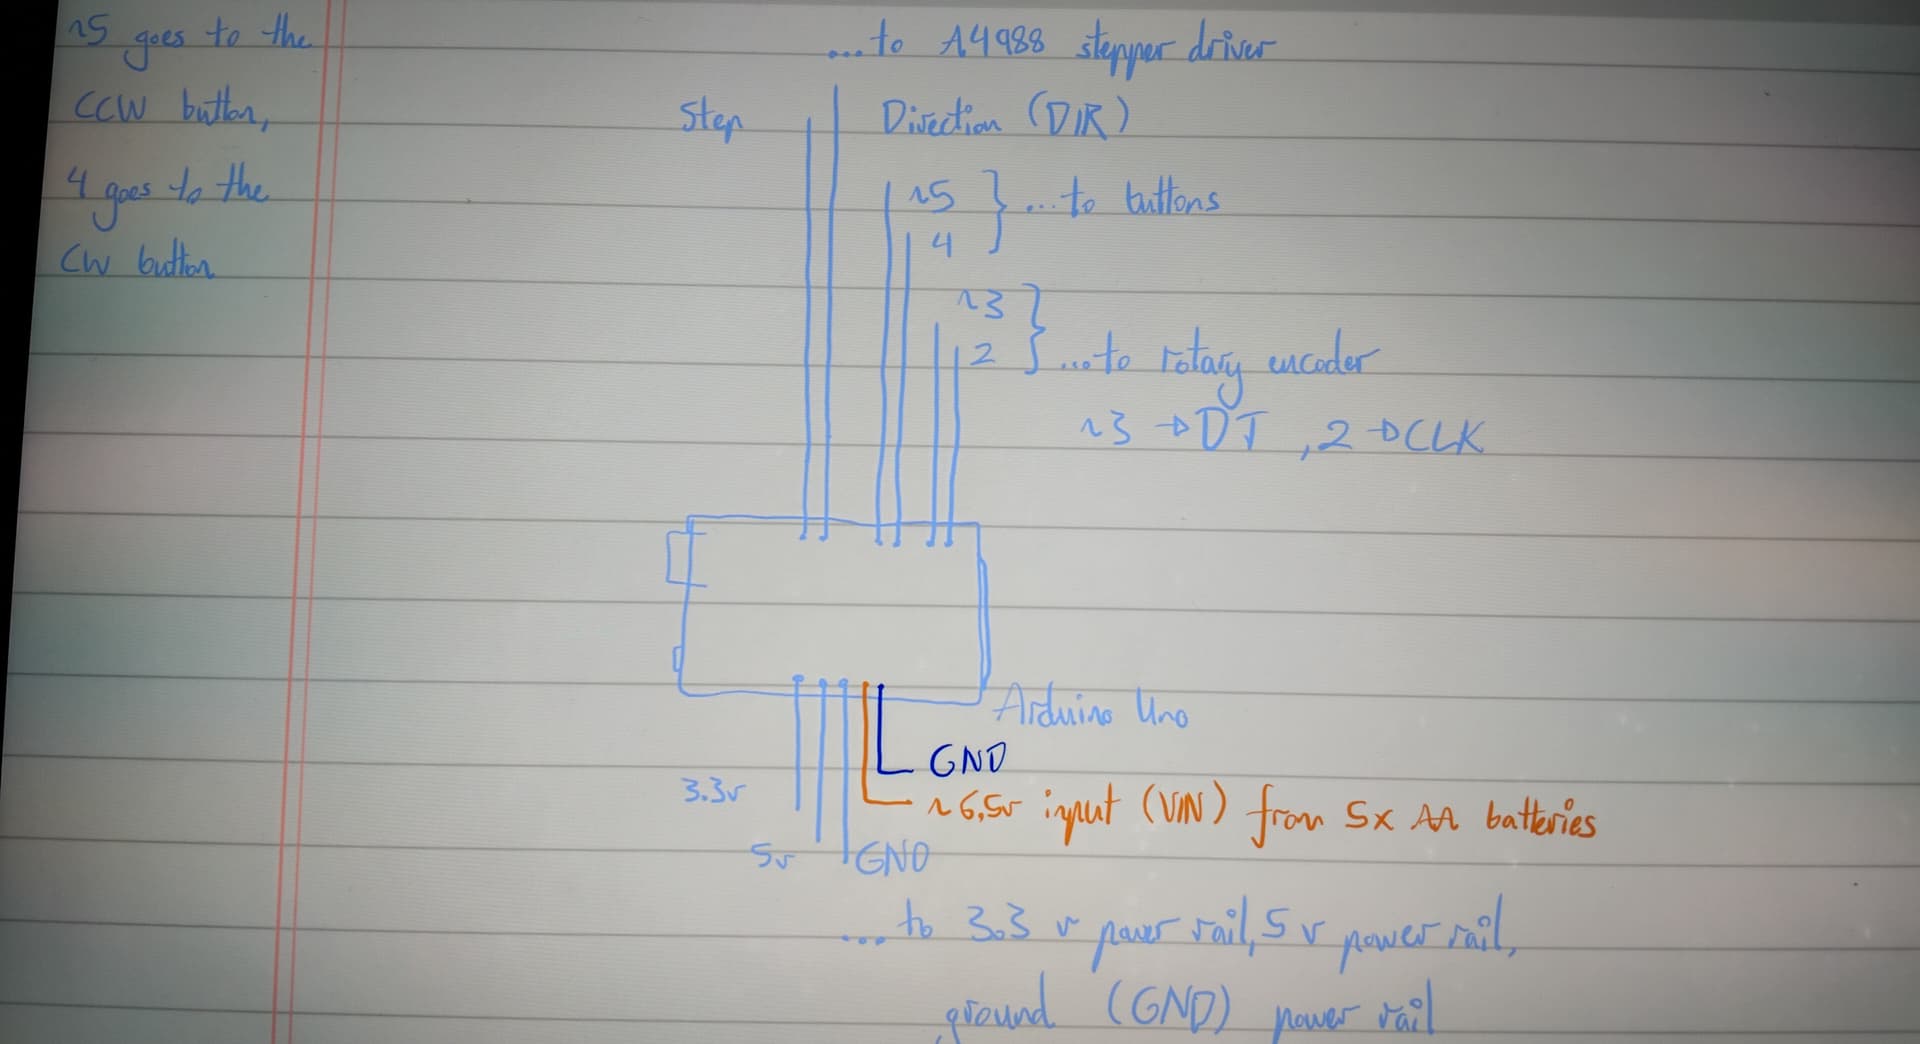 ~5 goes to the
CCW button,
4 goes to the
CW button
...to A4988 stepper driver
Step
Direction (DIR)
~5 } ...to buttons
4
~3
2 } ...to rotary encoder
~3 → DT, 2 → CLK
Arduino Uno
GND
~6,5v input (VIN) from 5x AA batteries
3.3v
5v
GND
...to 3.3 v power rail, 5 v power rail,
ground (GND) power rail